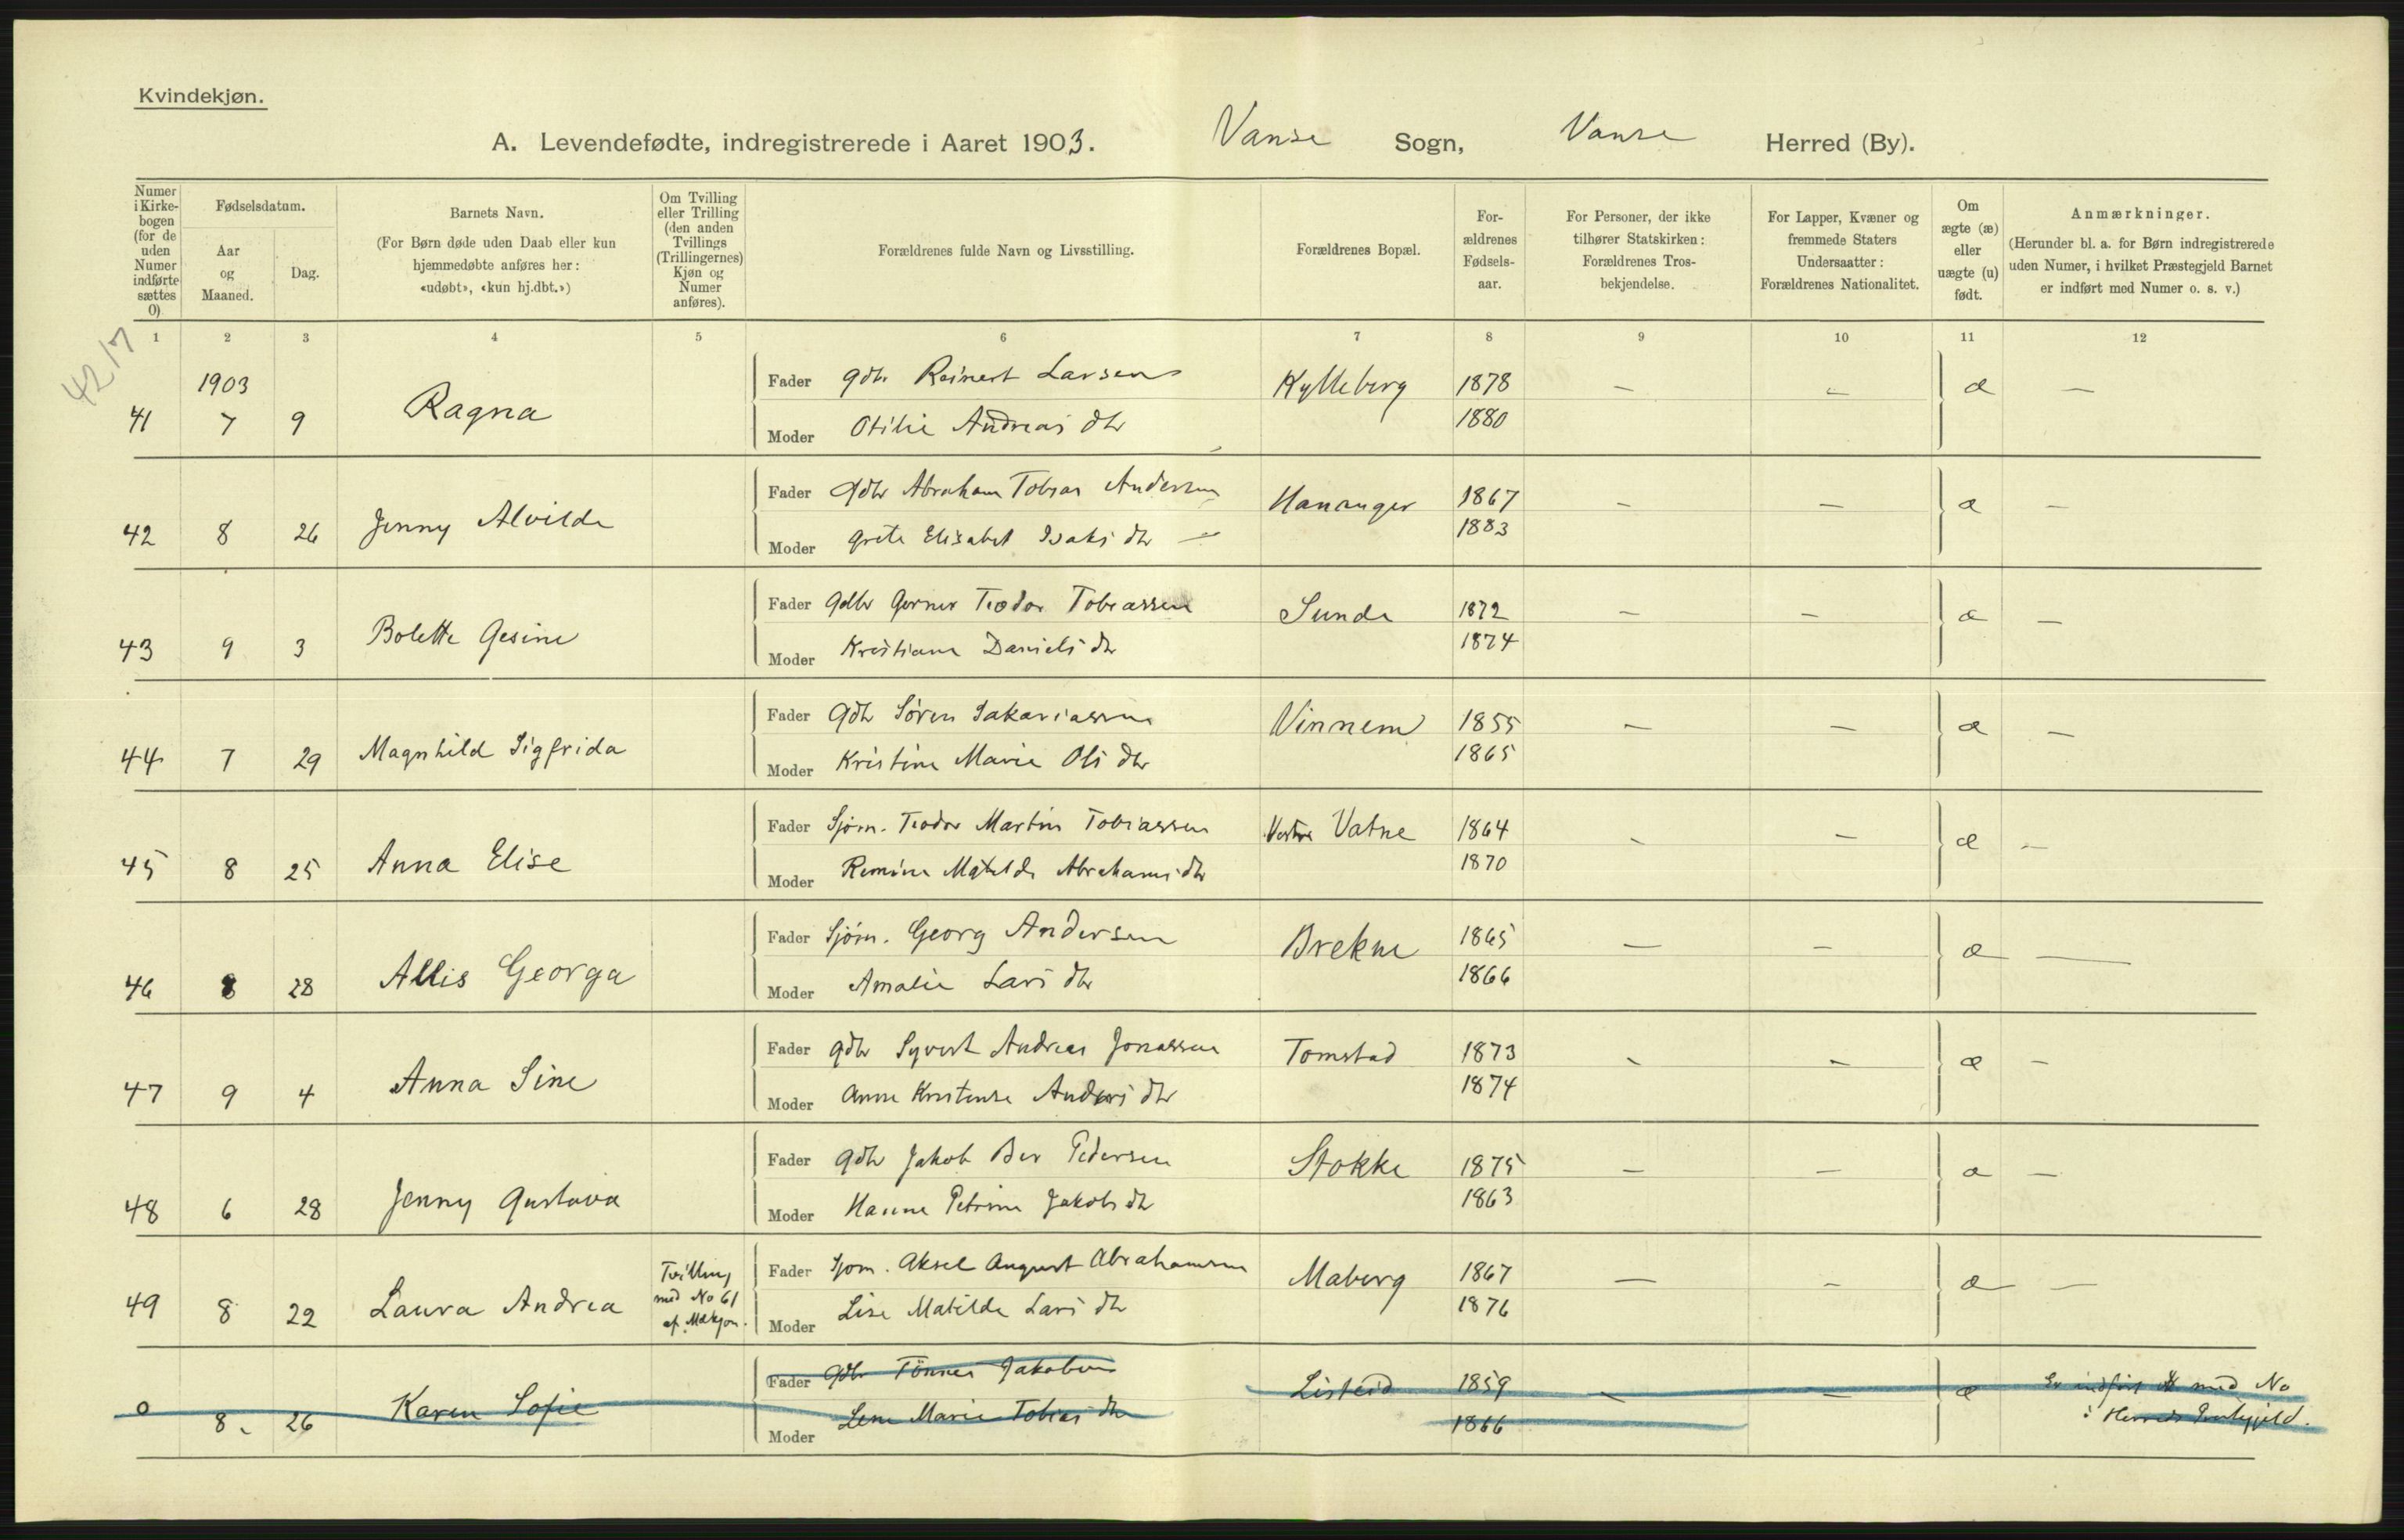 Kvindekjøn.
A. Levendefødte, indregistrerede i Aaret 1903. Vanse Sogn, Vanse Herred (By).
Numer i Kirkebogen (for de uden Numer indførte sættes 0)
Fødselsdatum.
Aar og Maaned.
Dag.
Barnets Navn.
(For Børn døde uden Daab eller kun hjemmedøbte anføres her: «udøbt», «kun hj.dbt.»)
Om Tvilling eller Trilling (den anden Tvillings (Trillingernes) Kjøn og Numer anføres).
Forældrenes fulde Navn og Livsstilling.
Forældrenes Bopæl.
Forældrenes Fødselsaar.
For Personer, der ikke tilhører Statskirken: Forældrenes Trosbekjendelse.
For Lapper, Kvæner og fremmede Staters Undersaatter: Forældrenes Nationalitet.
Om ægte (æ) eller uægte (u) født.
Anmærkninger.
(Herunder bl. a. for Børn indregistrerede uden Numer, i hvilket Præstegjeld Barnet er indført med Numer o. s. v.)
1 2 3 4 5 6 7 8 9 10 11 12
4217
1903
41 7 9 Ragna Fader Gdbr Reinert Larsen Kylleberg 1878 – – æ –
Moder Otilie Andreas dtr 1880
42 8 26 Jenny Alvilde Fader Gdbr Abraham Tobias Andersen Hananger 1867 – – æ –
Moder Grete Elisabet Isaks dtr 1883
43 9 3 Bolette Gesine Fader Gdbr Gerner Teodor Tobiassen Sunde 1872 – – æ –
Moder Kristiane Daniels dtr 1874
44 7 29 Magnhild Sigfrida Fader Gdbr Søren Sakariassen Vinnem 1855 – – æ –
Moder Kristine Marie Ols dtr 1865
45 8 25 Anna Elise Fader Sjøm. Teodor Martin Tobiassen Vestre Vatne 1864 – – æ –
Moder Remine Matilde Abrahams dtr 1870
46 8 28 Allis Georga Fader Sjøm. Georg Andersen Brekne 1865 – – æ –
Moder Amalie Lars dtr 1866
47 9 4 Anna Sine Fader Gdbr Syvert Andreas Jonassen Tomstad 1873 – – æ –
Moder Anne Kristense Anders dtr 1874
48 6 28 Jenny Gustava Fader Gdbr Jakob Ber Pedersen Stokke 1875 – – æ –
Moder Hanne Petrine Jakobs dtr 1863
49 8 22 Laura Andrea Tvilling med No 61 af Mdkjøn. Fader Sjøm. Aksel August Abrahamsen Maberg 1867 – – æ –
Moder Lise Matilde Lars dtr 1876
0 8 26 Karen Sofie Fader Gdbr Tønnes Jakobsen Listeid 1859 – – æ Er indført med No
Moder Lene Marie Tobias dtr 1866 i Herreds Prestegjeld.